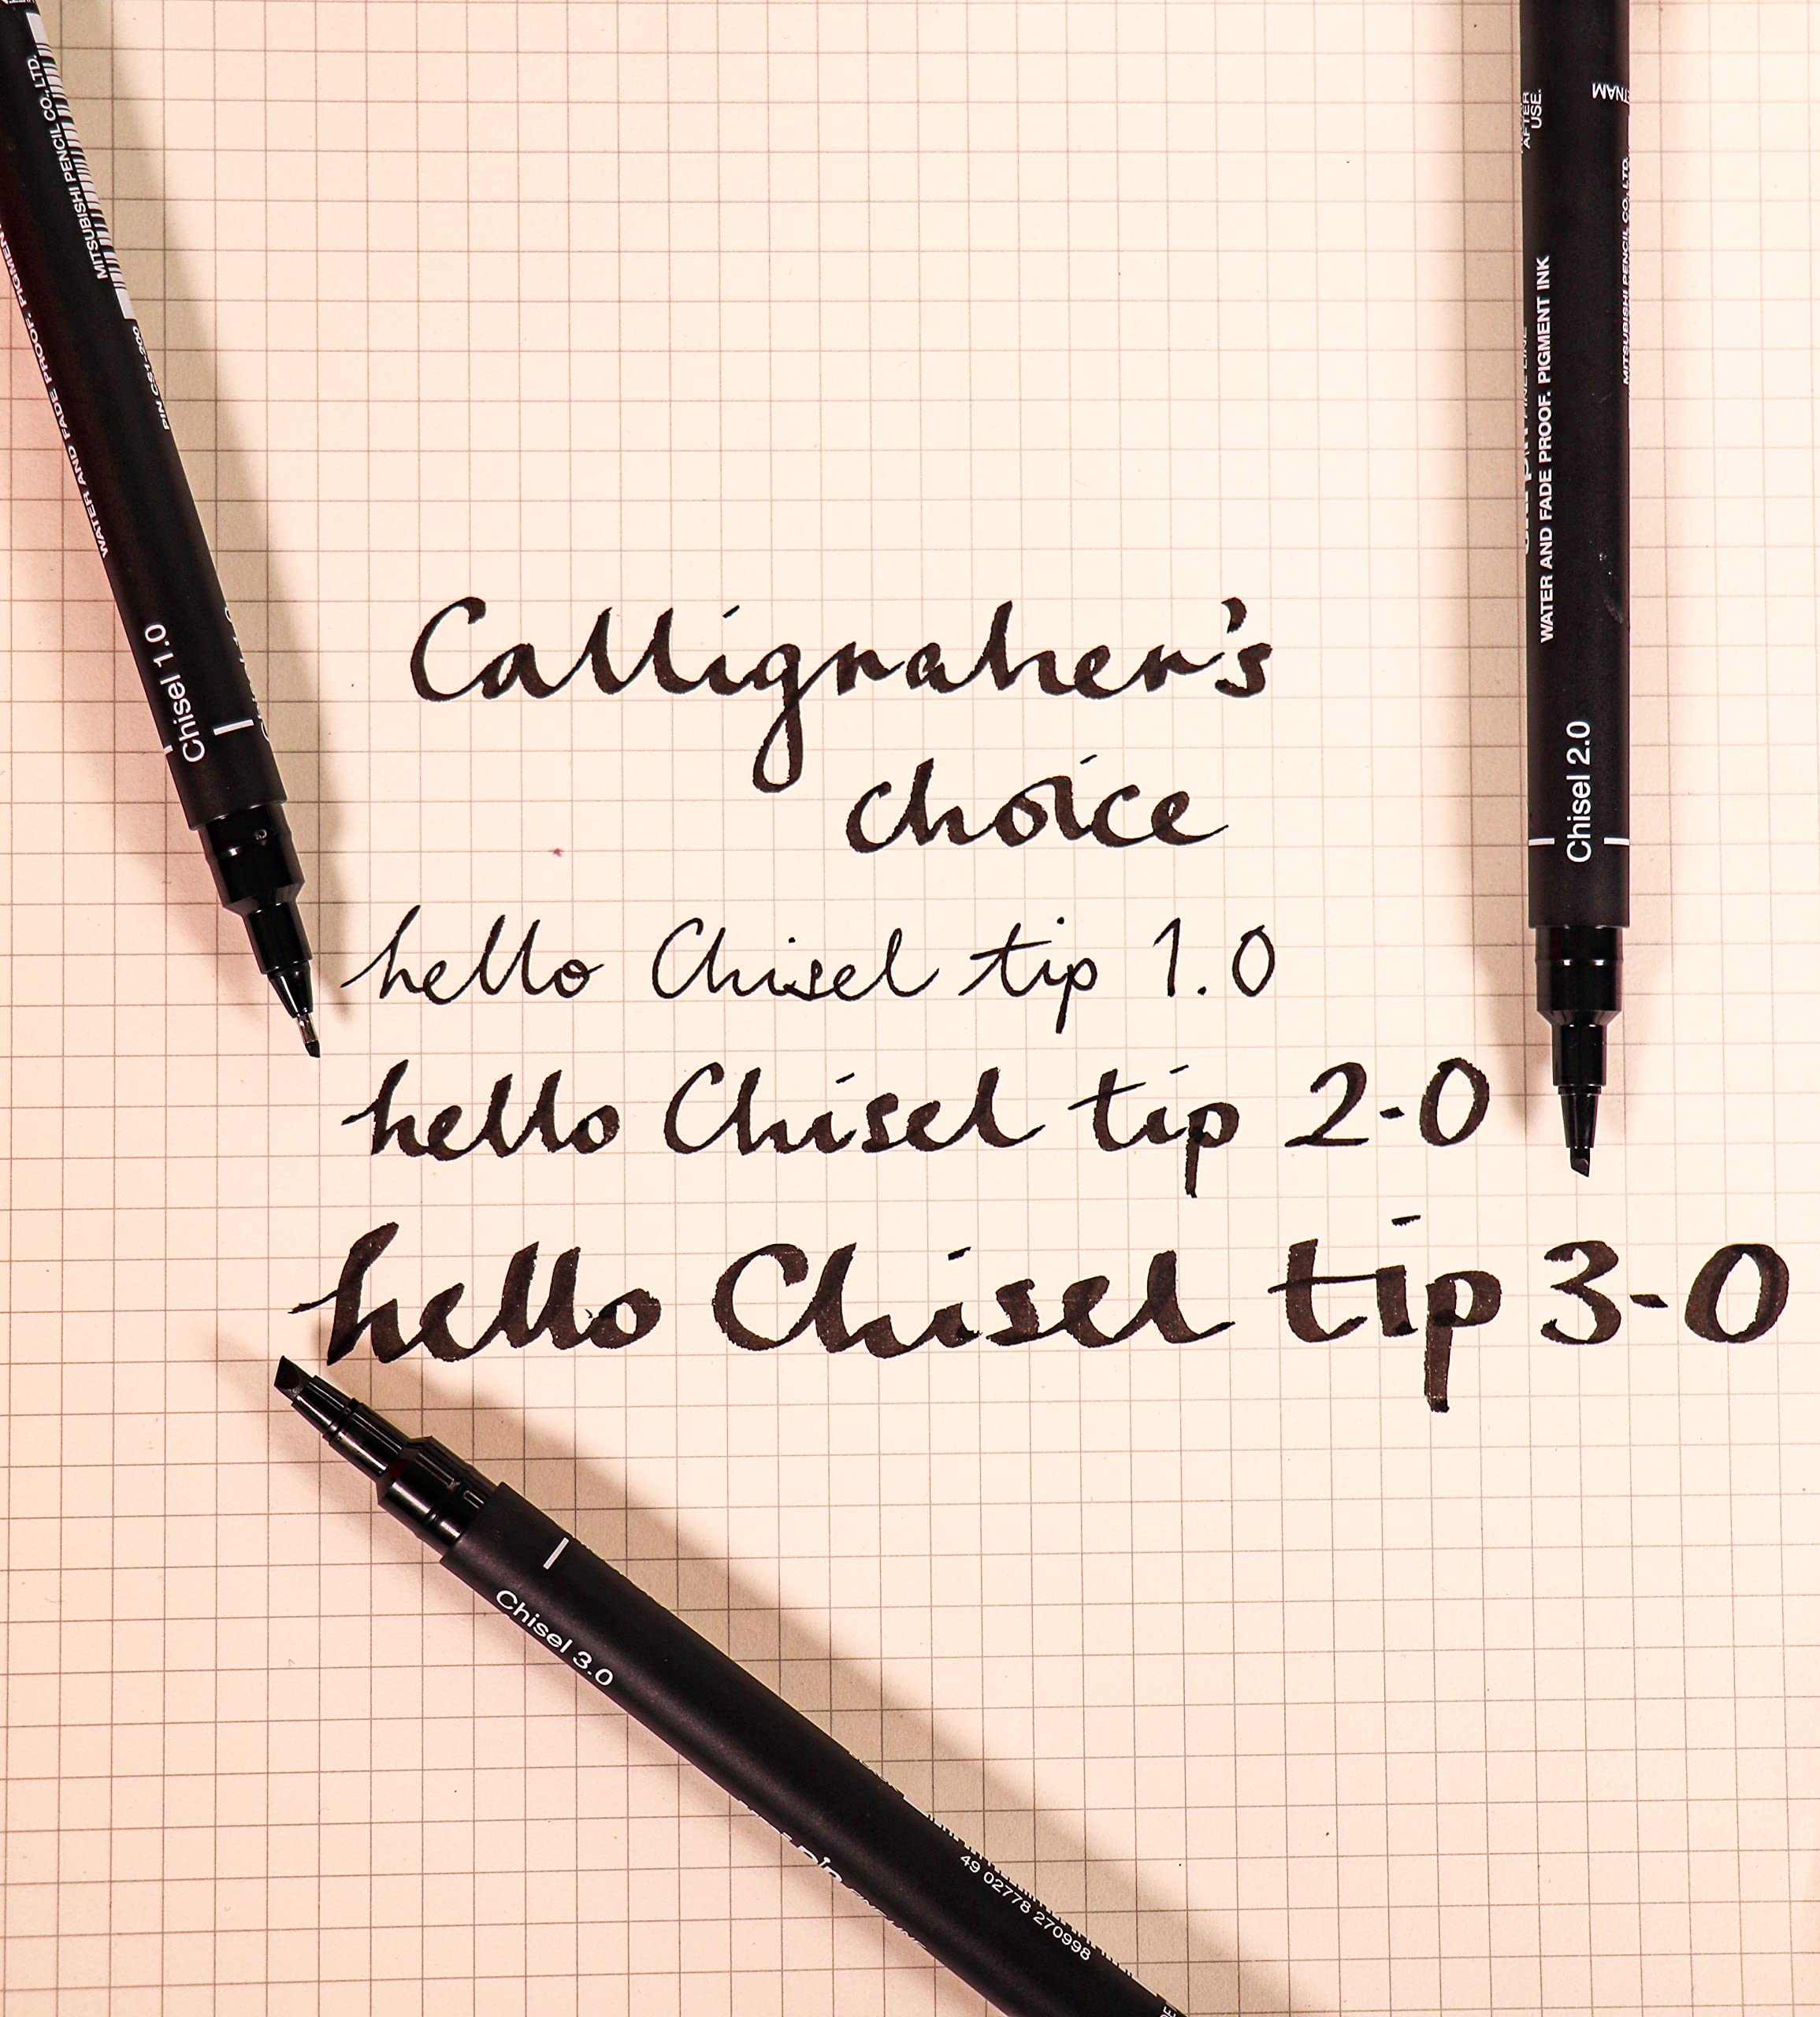 MITSUBISHI PENCIL CO., LTD.
WATER AND FADE PROOF. PIGMENT
PIN CS1-200
Chisel 1.0
AFTER
USE.
MITSUBISHI PENCIL CO., LTD.
WATER AND FADE PROOF. PIGMENT INK
Chisel 2.0
Calligraher's
choice
hello Chisel tip 1.0
hello Chisel tip 2-0
hello Chisel tip 3-0
Chisel 3.0
pin
49 02778 270998